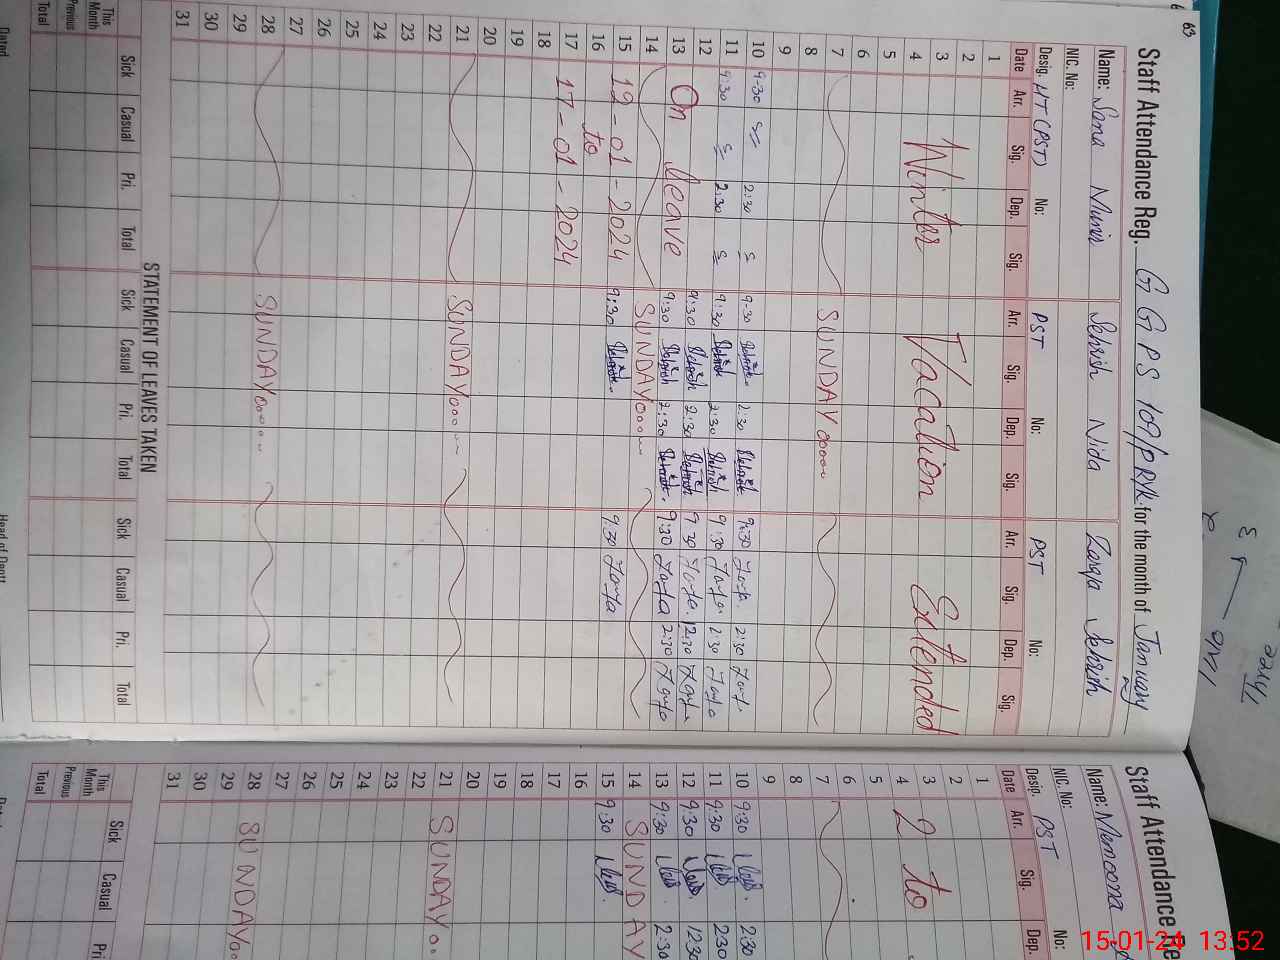 63
Staff Attendance Reg. G G P S 109/P RYK for the month of January
Name: Sana Munir Sehrish Nida Zarqa Sehrish
NIC. No:
Desig. HT (PST) No: PST No: PST No:
Date Arr. Sig. Dep. Sig. Arr. Sig. Dep. Sig. Arr. Sig. Dep. Sig.
1
2
3
4 Winter Vacation Extended
5
6
7 SUNDAY
8
9
10 9-30 2:30 9-30 2:30 9:30 2:30
11 9:30 2:30 9:30 2:30 9:30 2:30
12 9:30 2:30 9:30 12:30
13 On leave 9:30 2:30 9:30 2:30
14 SUNDAY
15 12-01-2024 9:30 9:30
16 to
17 17-01-2024
18
19
20
21 SUNDAY
22
23
24
25
26
27
28 SUNDAY
29
30
31
STATEMENT OF LEAVES TAKEN
Sick Casual Pri. Total Sick Casual Pri. Total Sick Casual Pri. Total
This Month
Previous
Total
Dated
Head of Deptt
Staff Attendance Re
Name: Memoona
NIC. No:
Desig. PST No:
Date Arr. Sig. Dep.
1
2
3
4 2 to
5
6
7
8
9
10 9:30 2:30
11 9:30 230
12 9:30 1230
13 9:30 2:30
14 SUNDAY
15 9:30
16
17
18
19
20
21 SUNDAY
22
23
24
25
26
27
28 SUNDAY
29
30
31
Sick Casual Pri
This Month
Previous
Total
15-01-24 13:52